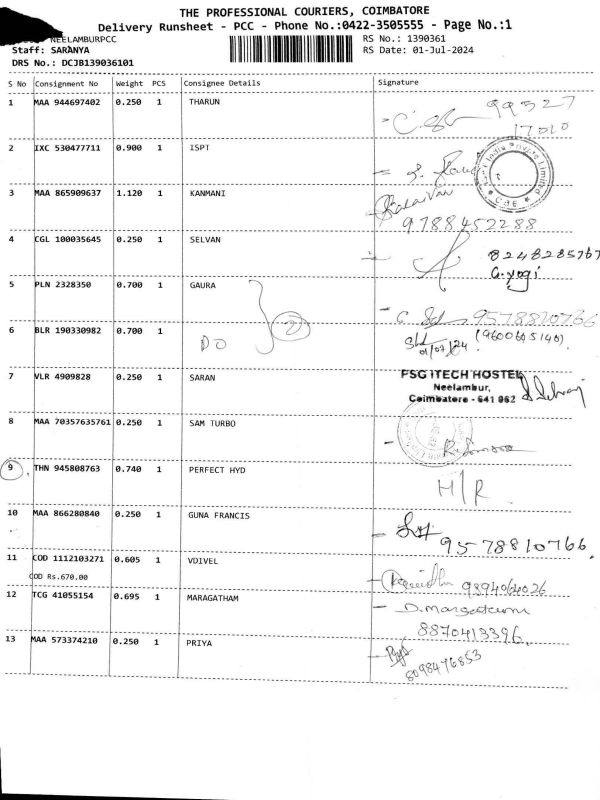 THE PROFESSIONAL COURIERS, COIMBATORE
Delivery Runsheet - PCC - Phone No.:0422-3505555 - Page No.:1
NEELAMBURPCC
RS No.: 1390361
Staff: SARANYA
RS Date: 01-Jul-2024
DRS No.: DCJB139036101
S No Consignment No Weight PCS Consignee Details Signature
1 MAA 944697402 0.250 1 THARUN
99527
17010
2 IXC 530477711 0.900 1 ISPT
India Private Limited
CBE
3 MAA 865909637 1.120 1 KANMANI
9788452288
4 CGL 100035645 0.250 1 SELVAN
8248285767
G.yogi
5 PLN 2328350 0.700 1 GAURA
2
C. Sd 9578810766
6 BLR 190330982 0.700 1
DO
01/07/24 (9600605140).
7 VLR 4909828 0.250 1 SARAN
PSG iTECH HOSTEL
Neelambur,
Coimbatore - 641 062
8 MAA 70357635761 0.250 1 SAM TURBO
9 THN 945808763 0.740 1 PERFECT HYD
H/R.
10 MAA 866280840 0.250 1 GUNA FRANCIS
9578810766.
11 COD 1112103271 0.605 1 VDIVEL
COD Rs.670.00
9894064026
12 TCG 41055154 0.695 1 MARAGATHAM
8870413396.
13 MAA 573374210 0.250 1 PRIYA
8098476853